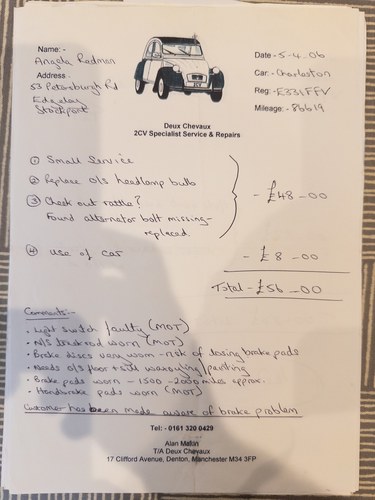 Name: -
Angela Radman
Address -
53 Petersburgh Rd
Edgeley
Stockport
Date - 5-4-06
Car: - Charleston
Reg: - E331FFV
Mileage: - 86619
Deux Chevaux
2CV Specialist Service & Repairs
① Small Service
② Replace o/s headlamp bulb
③ Check out rattle?
Found alternator bolt missing -
replaced.
- £48-00
④ use of car - £8-00
Total - £56-00
Comments:-
• Light switch faulty (MOT)
• N/S track rod worn (MOT)
• Brake discs very worn - risk of losing brake pads
• Needs o/s floor + sill waxoyling/painting
• Brake pads worn - 1500-2000 miles approx.
• Handbrake pads worn (MOT)
Customer has been made aware of brake problem
Tel: - 0161 320 0429
Alan Malkin
T/A Deux Chevaux
17 Clifford Avenue, Denton, Manchester M34 3FP